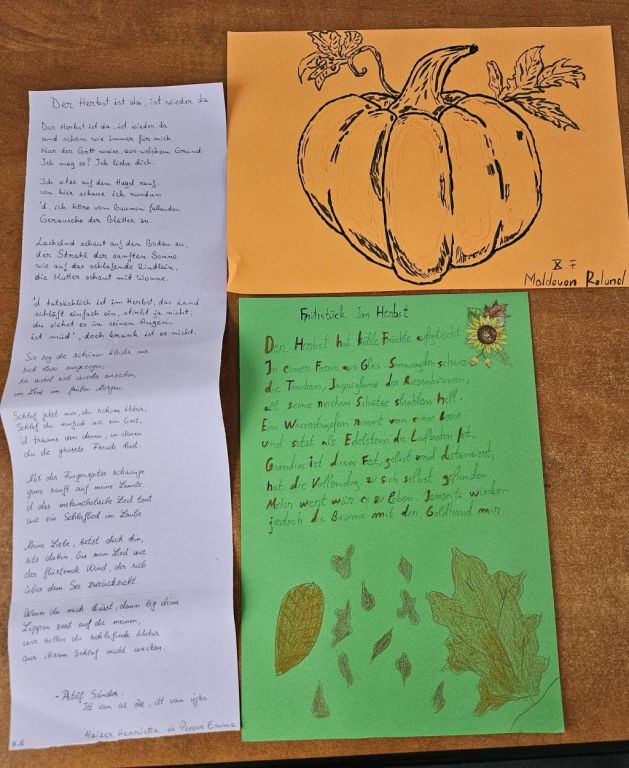 Der Herbst ist da, ist wieder da
Der Herbst ist da, ist wieder da
und schön wie immer für mich
Nur der Gott weiss, aus welchem Grund
Ich mag es? Ich liebe dich.
Ich sitze auf dem Hügel rauf,
von hier schaue ich rundum
'd, ich höre vom Baumen fallenden
Geräusche der Blätter zu.
Lächelnd schaut auf den Boden zu,
der Strahl der sanften Sonne
wie auf das schlafende Kindlein,
die Mutter schaut mit Wonne.
'd tatsächlich ist im Herbst, das Land
schläft einfach ein, stirbt ja nicht,
du siehst es in seinen Augen,
ist müd', doch krank ist es nicht.
Sie zog die schönen Kleider aus,
sich leise ausgezogen,
sie wird sich wieder anziehen,
im Lenz im frühen Morgen.
Schlaf jetzt nur, du schöne Natur,
Schlaf du einfach ein Gast,
'd träume von denen, in denen
du die grösste Freude hast.
Mit der Fingerspitze schwinge
ganz sanft auf meine Laute,
'd das melancholische Lied tönt
wie ein Schlaflied im Laube
Meine Liebe, setzt dich hin,
sitz dahin, bis mein Lied wie
der flüsternde Wind, der sich
über dem See zurückzieht.
Wenn du mich küsst, dann leg deine
Lippen zart auf die meinen,
wir sollen die schlafende Natur
aus ihrem Schlaf nicht wecken.
- Petőfi Sándor:
Itt van az ősz, itt van újra
Haizer Henrietta és Popper Emma
X. E
X F
Moldovan Roland
Frühstück Im Herbst
Der Herbst hat kühle Früchte aufgetischt
In einen Formen aus Glas. Smaragden schwere
die Trauben, Jaspisglanz der Riesenbirnen,
all seine reichen Schätze strahlen hell.
Ein Wassertropfen nimmt von einer Beere
und setzt als Edelstein die Laufbahn fort.
Grandios ist dieses Fest, gelöst und distanziert,
hat die Vollendung zu sich selbst gefunden.
Mehr wert wär es zu leben. Jenseits winken
jedoch die Bäume mit den Goldhand mir